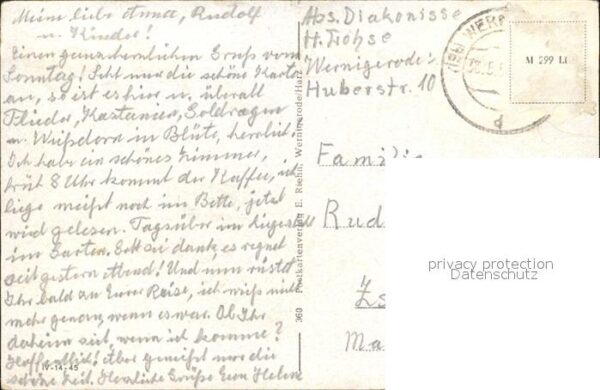 Meine liebe Anna, Rudolf
u. Kinder!
Einen ganz herrlichen Gruß vom
Sonntag! Seht nur die schöne Karte
an, so ist es hier u. überall
Flieder, Kastanien, Goldregen
u. Weißdorn in Blüte, herrlich!
Ich habe ein schönes Zimmer,
früh 8 Uhr kommt der Kaffee, ich
liege meist noch im Bette, jetzt
wird gelesen. Tagsüber im Liegestuhl
im Garten. Gott sei dank, es regnet
seit gestern Abend! Und nun rüstet
Ihr bald zu Eurer Reise, ich weiß nicht
mehr genau, wenn es war. Ob Ihr
daheim seit, wenn ich komme?
Hoffentlich! Aber genießt nur die
schöne Zeit. Herzliche Grüße Eure Helene
IV-14-45
360 Postkartenverlag E. Riehn, Wernigerode/Harz
Abs. Diakonisse
H. Lohse
Wernigerode
Huberstr. 10
M 299 Lt
d
Familie
Rud
Ma
privacy protection
Datenschutz